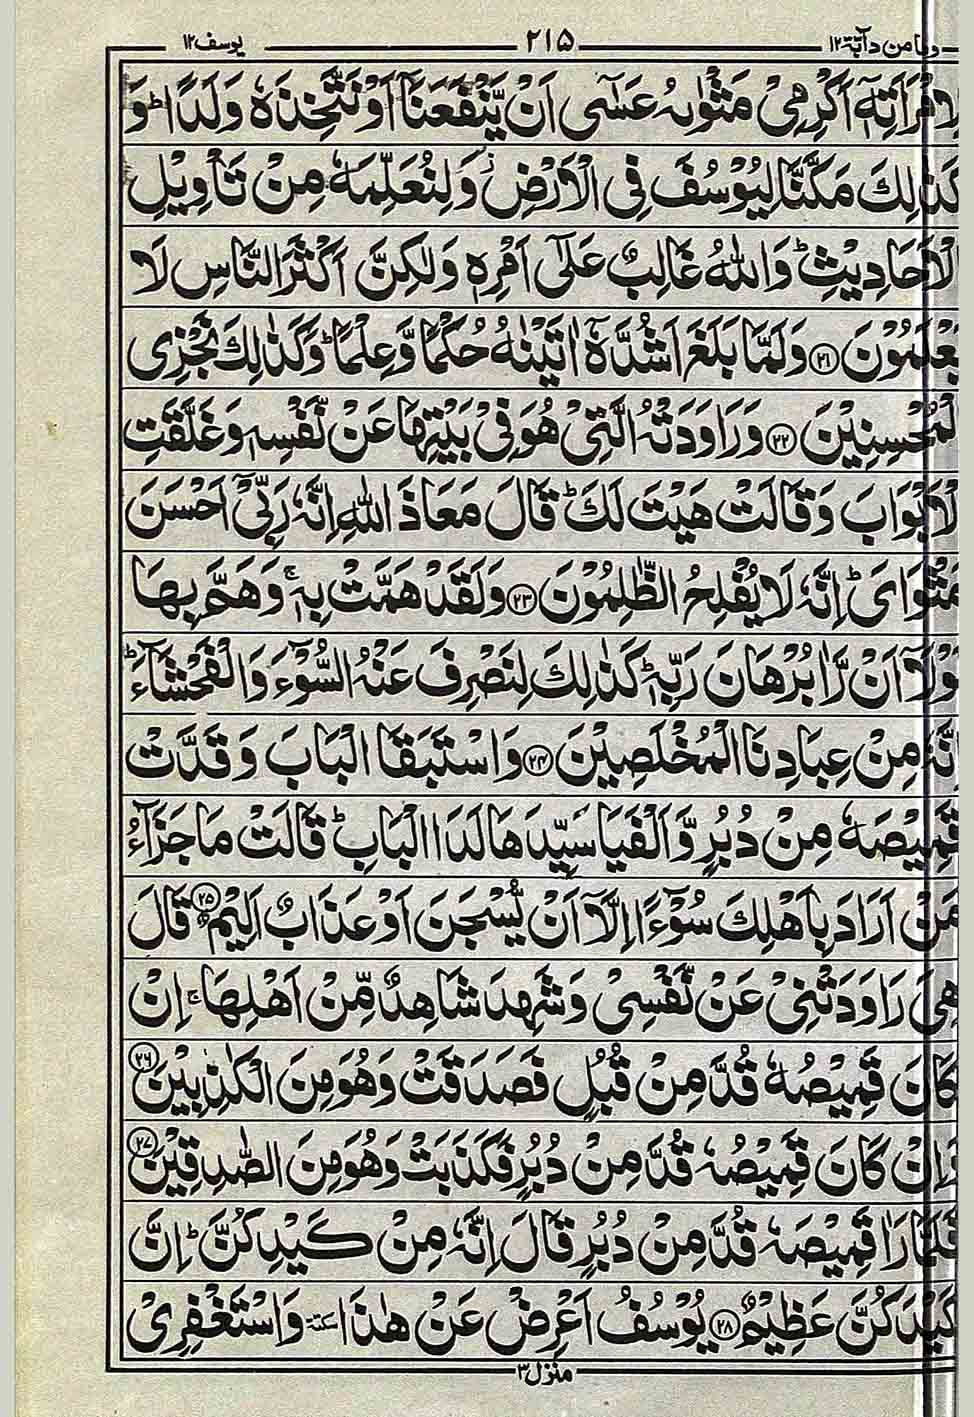 وما من دآبة ١٢ ٢١٥ یوسف ١٢
لِامْرَاَتِهٖۤ اَكْرِمِیْ مَثْوٰىهُ عَسٰۤی اَنْ یَّنْفَعَنَاۤ اَوْ نَتَّخِذَهٗ وَلَدًا ؕ وَ
كَذٰلِكَ مَكَّنَّا لِیُوْسُفَ فِی الْاَرْضِ ؗ وَلِنُعَلِّمَهٗ مِنْ تَاْوِیْلِ
الْاَحَادِیْثِ ؕ وَاللّٰهُ غَالِبٌ عَلٰۤی اَمْرِهٖ وَلٰكِنَّ اَكْثَرَ النَّاسِ لَا
یَعْلَمُوْنَ ۲۱ وَلَمَّا بَلَغَ اَشُدَّهٗۤ اٰتَیْنٰهُ حُكْمًا وَّعِلْمًا ؕ وَكَذٰلِكَ نَجْزِی
الْمُحْسِنِیْنَ ۲۲ وَرَاوَدَتْهُ الَّتِیْ هُوَ فِیْ بَیْتِهَا عَنْ نَّفْسِهٖ وَغَلَّقَتِ
الْاَبْوَابَ وَقَالَتْ هَیْتَ لَكَ ؕ قَالَ مَعَاذَ اللّٰهِ اِنَّهٗ رَبِّیْۤ اَحْسَنَ
مَثْوَایَ ؕ اِنَّهٗ لَا یُفْلِحُ الظّٰلِمُوْنَ ۲۳ وَلَقَدْ هَمَّتْ بِهٖ ۚ وَهَمَّ بِهَا
لَوْلَاۤ اَنْ رَّاٰ بُرْهَانَ رَبِّهٖ ؕ كَذٰلِكَ لِنَصْرِفَ عَنْهُ السُّوْٓءَ وَالْفَحْشَآءَ ؕ
اِنَّهٗ مِنْ عِبَادِنَا الْمُخْلَصِیْنَ ۲۴ وَاسْتَبَقَا الْبَابَ وَقَدَّتْ
قَمِیْصَهٗ مِنْ دُبُرٍ وَّاَلْفَیَا سَیِّدَهَا لَدَا الْبَابِ ؕ قَالَتْ مَا جَزَآءُ
مَنْ اَرَادَ بِاَهْلِكَ سُوْٓءًا اِلَّاۤ اَنْ یُّسْجَنَ اَوْ عَذَابٌ اَلِیْمٌ ۲۵ قَالَ
هِیَ رَاوَدَتْنِیْ عَنْ نَّفْسِیْ وَشَهِدَ شَاهِدٌ مِّنْ اَهْلِهَا ۚ اِنْ
كَانَ قَمِیْصُهٗ قُدَّ مِنْ قُبُلٍ فَصَدَقَتْ وَهُوَ مِنَ الْكٰذِبِیْنَ ۲۶
وَاِنْ كَانَ قَمِیْصُهٗ قُدَّ مِنْ دُبُرٍ فَكَذَبَتْ وَهُوَ مِنَ الصّٰدِقِیْنَ ۲۷
فَلَمَّا رَاٰ قَمِیْصَهٗ قُدَّ مِنْ دُبُرٍ قَالَ اِنَّهٗ مِنْ كَیْدِكُنَّ ؕ اِنَّ
كَیْدَكُنَّ عَظِیْمٌ ۲۸ یُوْسُفُ اَعْرِضْ عَنْ هٰذَا سكتة وَاسْتَغْفِرِیْ
منزل ٣